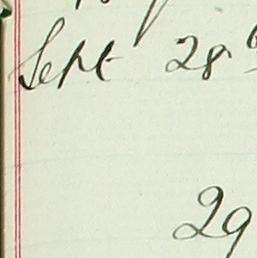 Sept 28
29